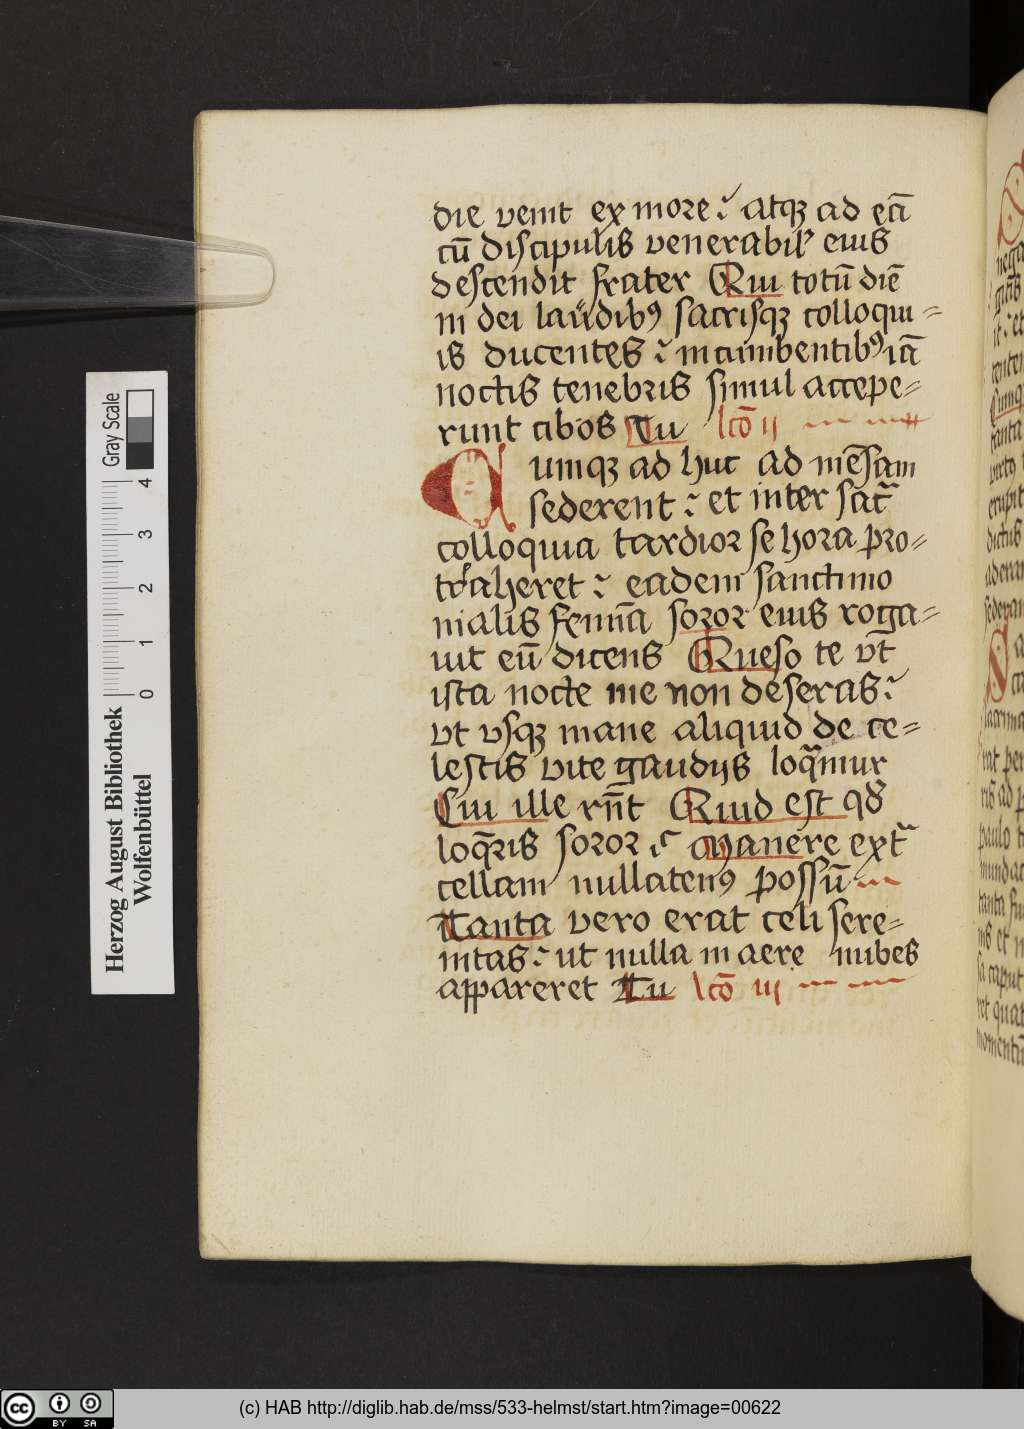 die venit ex more : atqꝫ ad eā
cū discipulis venerabilʼ eius
descendit frater Qui totū diē
in dei laudibꝰ sacrisqꝫ colloqui=
is ducentes : incumbentibꝰ iā
noctis tenebris simul accepe=
runt cibos Tu lcō ii
Cumqꝫ ad huc ad mēsam
sederent : et inter sacͣ
colloquia tardior se hora pro=
traheret : eadem sanctimo
nialis femīa soror eius roga=
uit eū dicens Queso te vt
ista nocte me non deseras :
vt vsqꝫ mane aliquid de ce=
lestis vite gaudijs loqͣmur
Cui ille rn̄t Quid est qd
loq̄ris soror : Manere extͣ
cellam nullatenꝰ possū
Tanta vero erat celi sere=
nitas : ut nulla in aere nubes
appareret Tu lcō iii
Herzog August Bibliothek
Wolfenbüttel
Gray Scale
0 1 2 3 4
cc BY SA
(c) HAB http://diglib.hab.de/mss/533-helmst/start.htm?image=00622